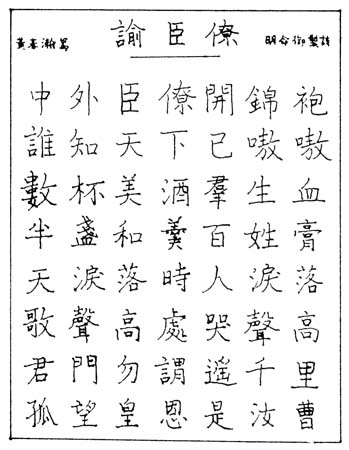 黃春寫
諭臣僚
明命御製詩
中外臣僚開錦袍
誰知天下已嗷嗷
數杯美酒羣生血
半盞和羹百姓膏
天淚落時人淚落
歌聲高處哭聲高
君門勿謂遙千里
孤望皇恩是汝曹